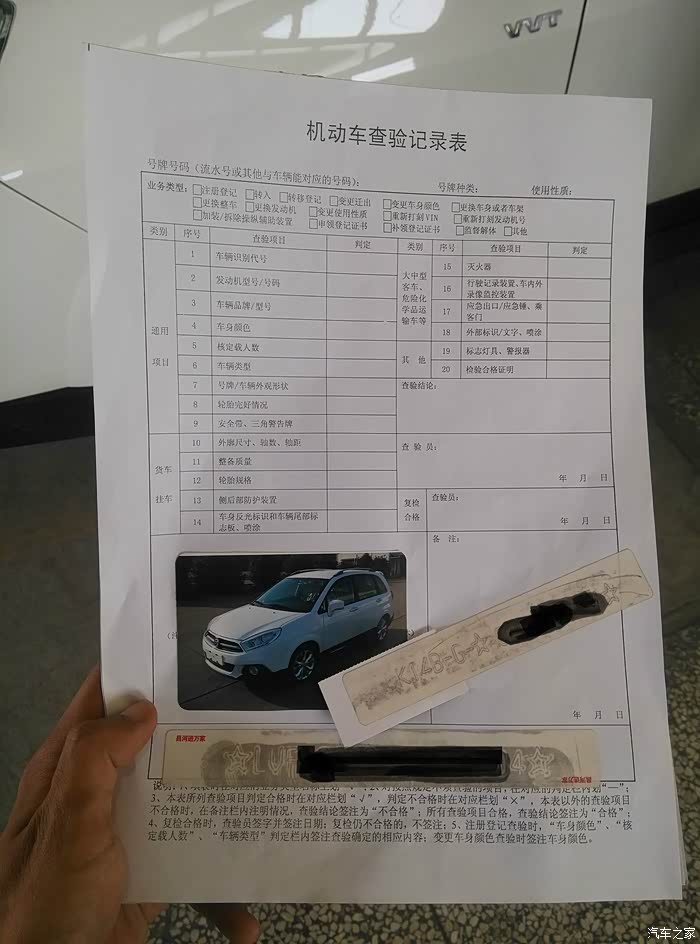 VVT
机动车查验记录表
号牌号码（流水号或其他与车辆能对应的号码）： 号牌种类： 使用性质：
业务类型： □注册登记 □转入 □转移登记 □变更迁出 □变更车身颜色 □更换车身或者车架
□更换整车 □更换发动机 □变更使用性质 □重新打刻VIN □重新打刻发动机号
□加装/拆除操纵辅助装置 □申领登记证书 □补领登记证书 □监督解体 □其他
类别 序号 查验项目 判定 类别 序号 查验项目 判定
通用项目
1 车辆识别代号
2 发动机型号/号码
3 车辆品牌/型号
4 车身颜色
5 核定载人数
6 车辆类型
7 号牌/车辆外观形状
8 轮胎完好情况
9 安全带、三角警告牌
货车挂车
10 外廓尺寸、轴数、轴距
11 整备质量
12 轮胎规格
13 侧后部防护装置
14 车身反光标识和车辆尾部标
志板、喷涂
大中型
客车、
危险化
学品运
输车等
15 灭火器
16 行驶记录装置、车内外
录像监控装置
17 应急出口/应急锤、乘
客门
18 外部标识/文字、喷涂
其 他
19 标志灯具、警报器
20 检验合格证明
查验结论：
查 验 员：
年 月 日
复检
合格
查验员：
年 月 日
备 注：
年 月 日
昌河迈方家
3、本表所列查验项目判定合格时在对应栏划“√”，判定不合格时在对应栏划“×”，本表以外的查验项目
不合格时，在备注栏内注明情况，查验结论签注为“不合格”；所有查验项目合格，查验结论签注为“合格”；
4、复检合格时，查验员签字并签注日期；复检仍不合格的，不签注；5、注册登记查验时，“车身颜色”、“核
定载人数”、“车辆类型”判定栏内签注查验确定的相应内容；变更车身颜色查验时签注车身颜色。
汽车之家